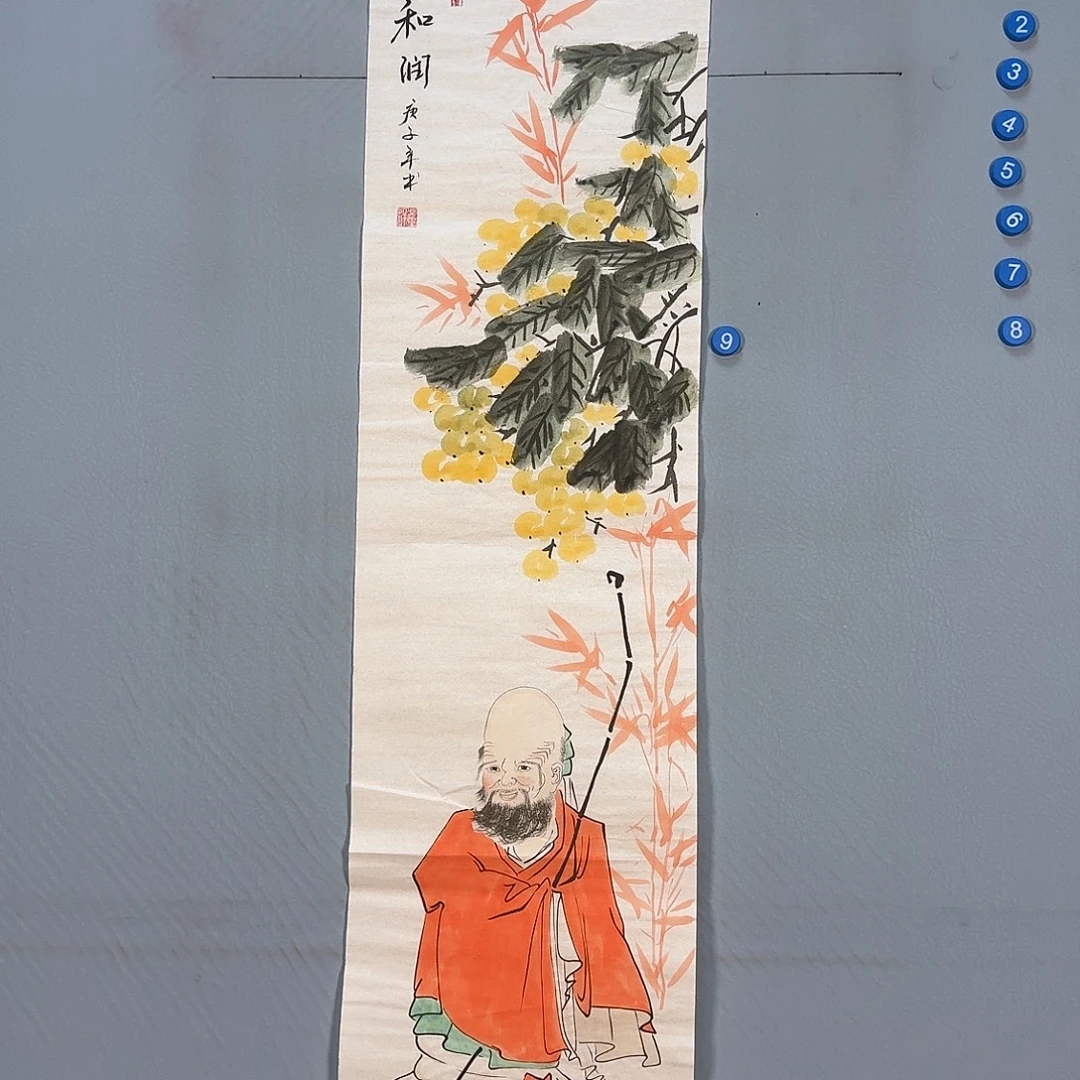 和润
庚子年
2
3
4
5
6
7
8
9